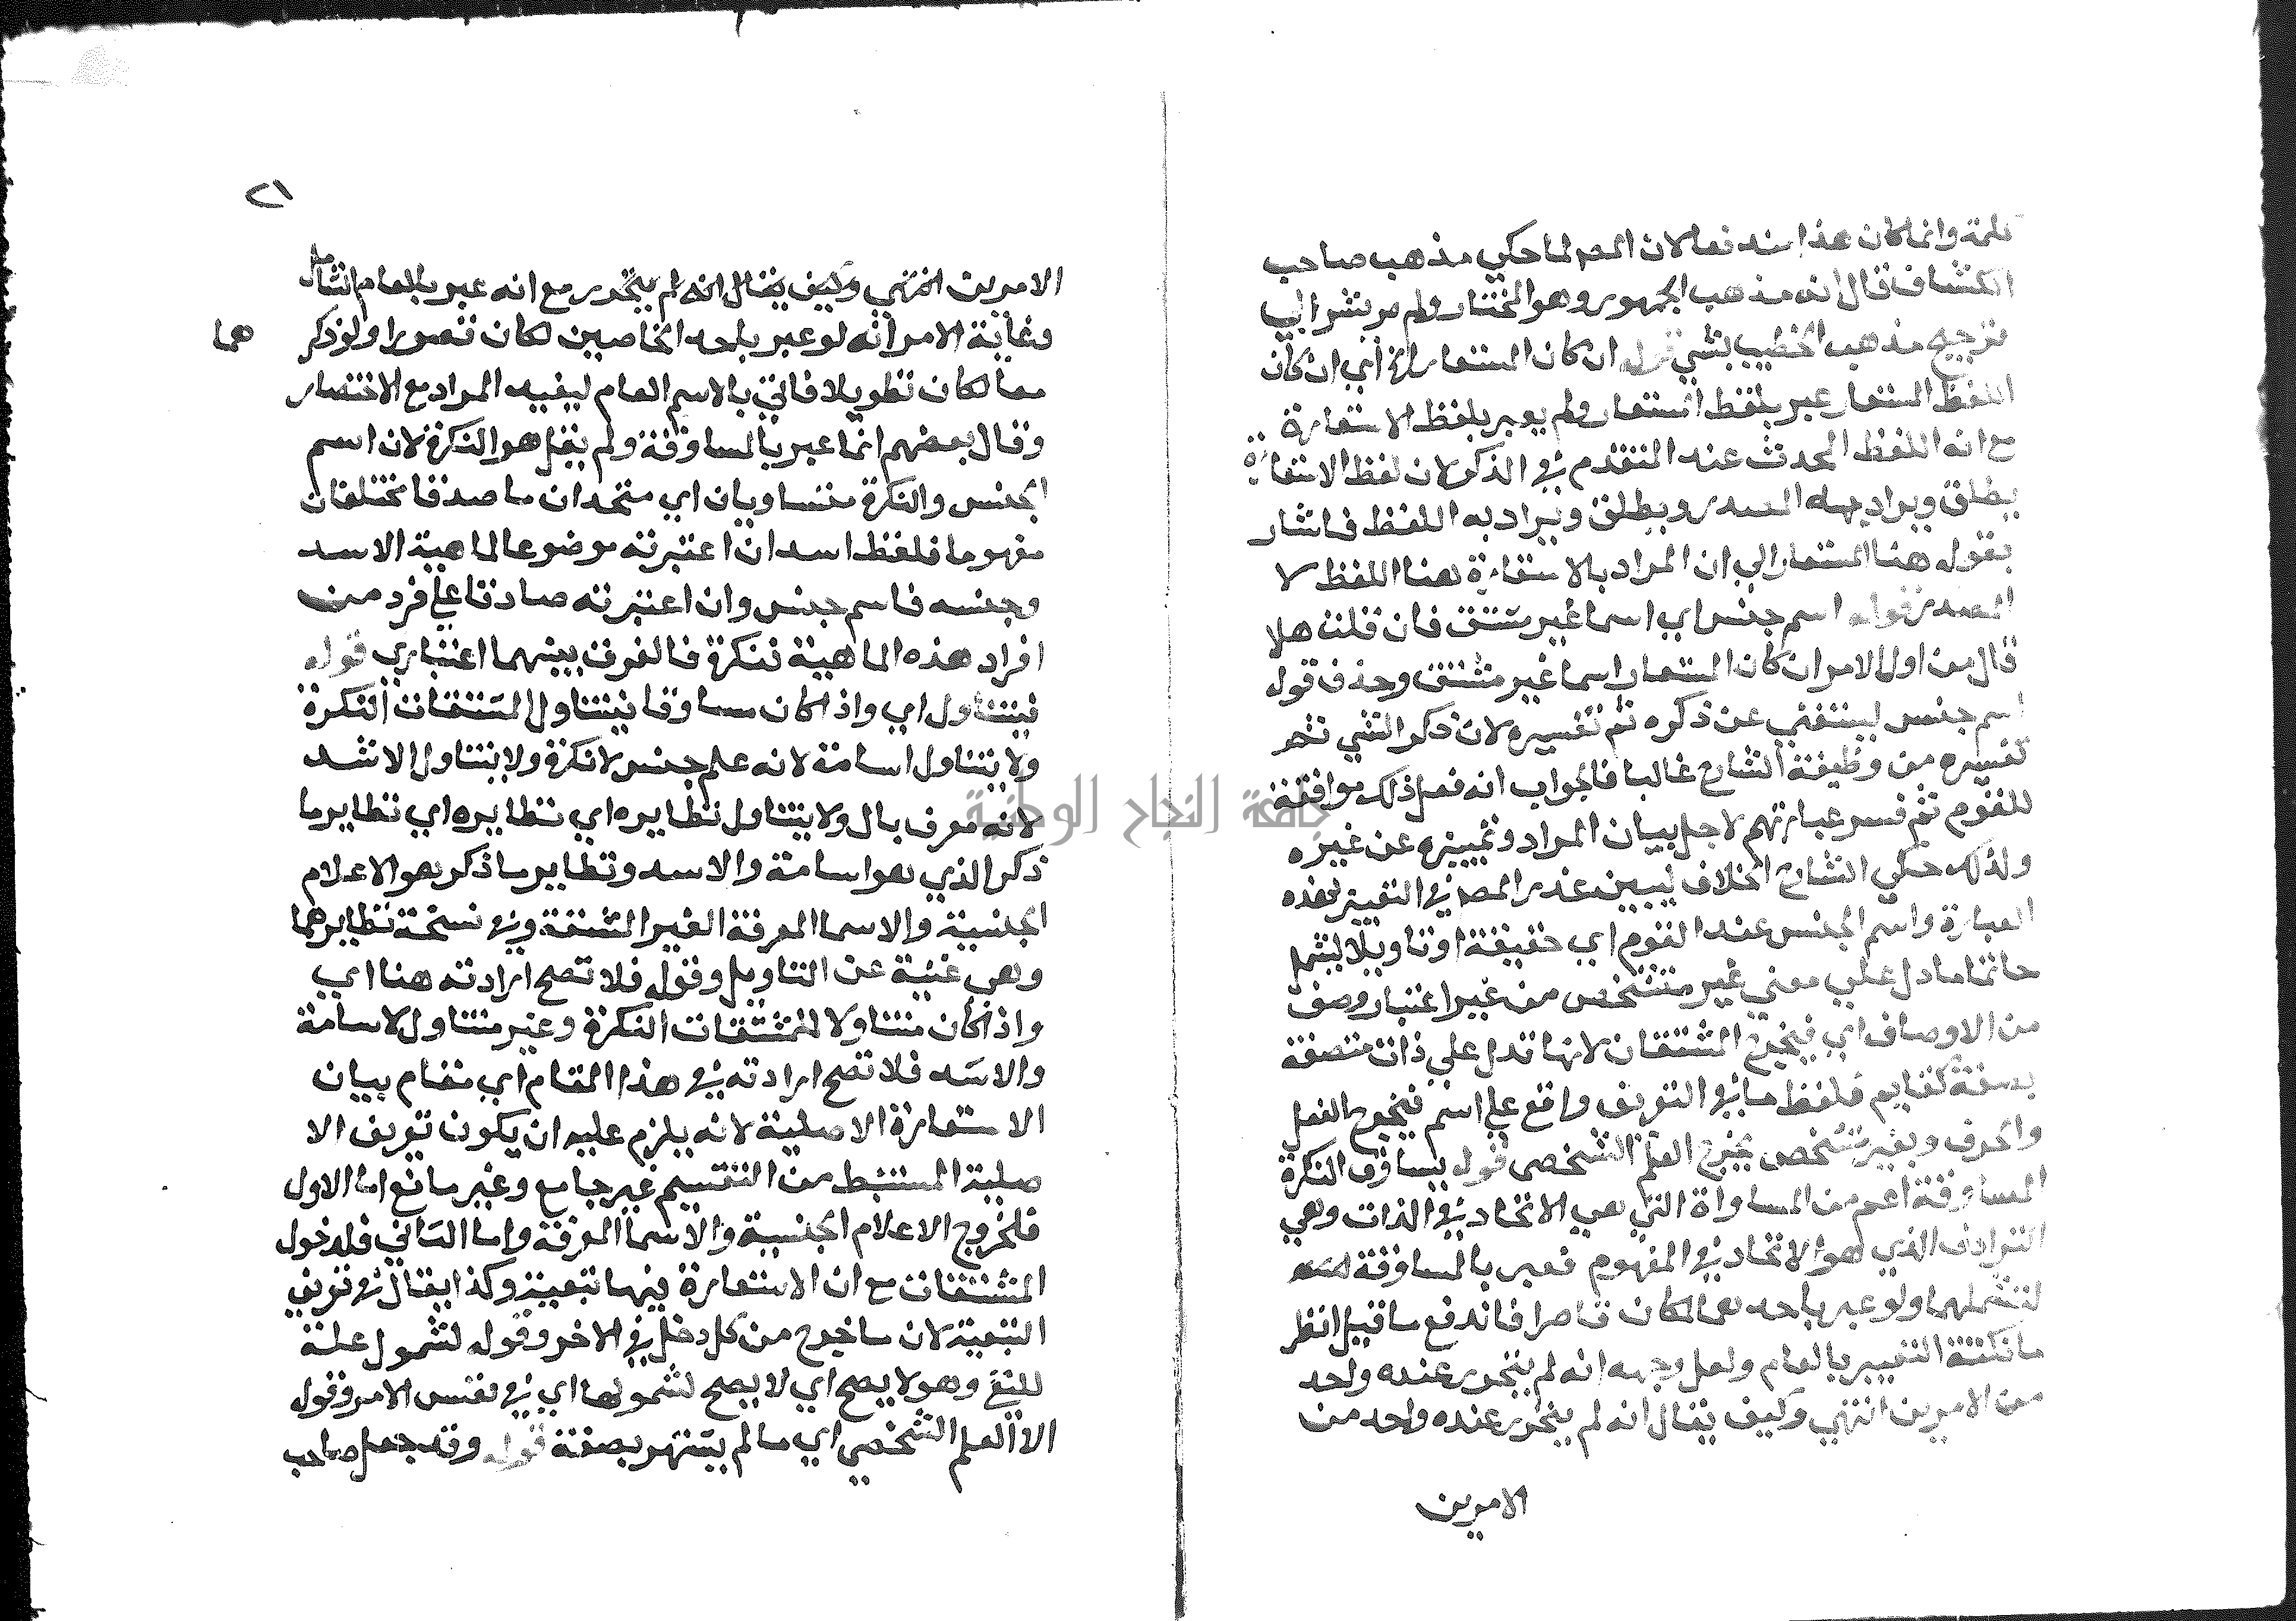 كلمة وانما كان هذا اسند نعا لان المص لما حكي مذهب صاحب
الكشاف قال انه مذهب الجمهور وهو المختار ولم يشر الي
ترجيح مذهب الخطيب بشي قوله ان كان المستعار الخ أي ان كان
اللفظ المستعار عبر بلفظ المستعار ولم يعبر بلفظ الاستعارة
مع انه اللفظ المحدث عنه المتقدم في الذكر لان لفظ الاستعارة
يطلق ويراد به المصدر ويطلق ويراد به اللفظ فاشار
بقوله هنا المستعار الي ان المراد بالاستعارة هنا اللفظ لا
المصدر قوله اسم جنس اي اسما غير مشتق فان قلت هلا
قال من اول الامر ان كان المستعار اسما غير مشتق وحذف قوله
اسم جنس ليستغني عن ذكره ثم تفسيره لان ذكر الشي ثم
تفسيره من وظيفة الشارح غالبا فالجواب انه فعل ذلك موافقة
للقوم ثم فسر عبارتهم لاجل بيان المراد وتمييزه عن غيره
ولذلك حكي الشارح الخلاف ليبين عذر المص في التعبير بهذه
العبارة واسم الجنس عند القوم اي حقيقة او تاويلا ليشمل
حاتما ما دل علي معني غير متشخص من غير اعتبار وصف
من الاوصاف اي فيخرج المشتقان لانها تدل علي ذات متصفة
بصفة كقايم فلفظ ما في التعريف واقع علي اسم فيخرج الفعل
والحرف وبغير متشخص يخرج العلم الشخصي قوله يساوق النكرة
المساوقة اعم من المساواة التي هي الاتحاد في الذات وهي
الترادف الذي هو الاتحاد في المفهوم فعبر بالمساوقة
لتشملهما ولو عبر باحدهما لكان قاصرا فاندفع ما قيل انظر
ما نكتة التعبير بالعام ولعل وجهه انه لم يتحرر عنده واحد
من الامرين انتهي وكيف يقال انه لم يتحرر عنده واحد من
الامرين
٢١
الامرين انتهي وكيف يقال انه لم يتحرر مع انه عبر بالعام الشامل
وغاية الامر انه لو عبر باحد الخاصين لكان تصورا ولو ذكر
هما
معا لكان تطويلا فاتي بالاسم العام ليفيد المراد مع الاختصار
وقال بعضهم انما عبر بالمساوقة ولم يقل هو النكرة لان اسم
الجنس والنكرة متساويان اي متحدان ما صدقا مختلفان
مفهوما فلفظ اسد ان اعتبرته موضوعا لماهية الاسد
وجنسه فاسم جنس وان اعتبرته صادقا علي فرد من
افراد هذه الماهية نكرة فالفرق بينهما اعتباري قوله
فيتناول اي واذا كان مساوقا فيتناول المشتقات النكرة
ولا يتناول اسامة لانه علم جنس لا نكرة ولا يتناول الاسد
لانه معرف بال ولا يتناول نظايره اي نظايره اي نظاير ما
ذكر الذي هو اسامة والاسد ونظاير ما ذكر هو الاعلام
الجنسية والاسما المعرفة الغير المشتقة وفي نسخة نظايرهما
وهي غنية عن التاويل وقوله فلا تصح ارادته هنا اي
واذا كان متناولا للمشتقات النكرة وغير متناول لاسامة
والاسد فلا تصح ارادته في هذا المقام اي مقام بيان
الاستعارة الاصلية لانه يلزم عليه ان يكون تعريف الا
صلية المستنبط من التقسيم غير جامع وغير مانع اما الاول
فلخروج الاعلام الجنسية والاسما المعرفة واما الثاني فلدخول
المشتقات مع ان الاستعارة فيها تبعية وكذا يقال في تعريف
التبعية لان ما خرج من كل دخل في الاخر وقوله لشمول علة
للنفي وهو لا يصح اي لا يصح لشمولها اي في نفس الامر وقوله
الا العلم الشخصي اي ما لم يشتهر بصفة قوله وقد جعل صاحب
جامعة النجاح الوطنية